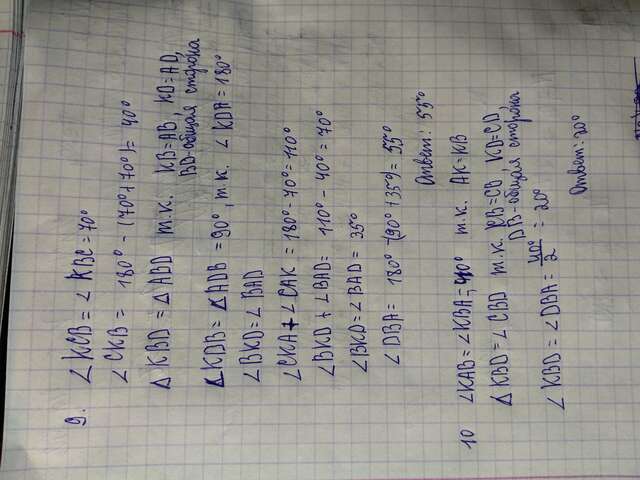 9. ∠KCB = ∠KBC = 70°
∠CKB = 180° - (70°+70°)= 40°
△KBD = △ABD т.к. KB=AB, KD=AD,
BD-общая сторона
∡KDB = ∡ADB = 90°, т.к. ∠KDA = 180°
∠BKD = ∠BAD
∠CKA + ∠CAK = 180° - 70° = 110°
∠BKD + ∠BAD = 110° - 40° = 70°
∠BKD = ∠BAD = 35°
∠DBA = 180° -(90° + 35°) = 55°
Ответ: 55°
10 ∠KAB = ∠KBA = 40° т.к. AK=KB
△KBD = ∠CBD т.к. KB=CB, KD=CD,
DB-общая сторона
∠KBD = ∠DBA = 40°/2 = 20°
Ответ: 20°